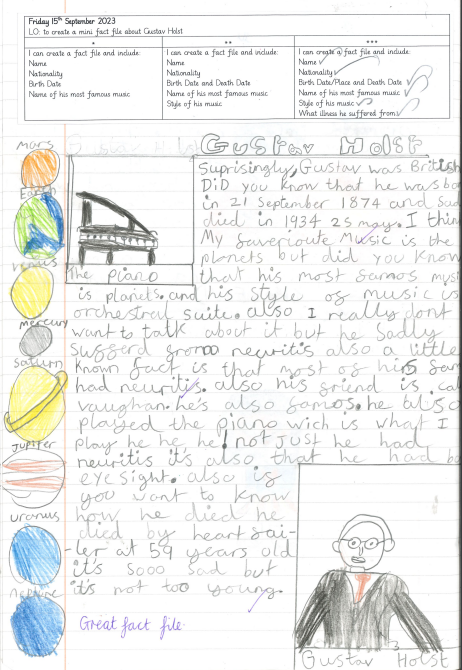 Friday 15th September 2023
LO: to create a mini fact file about Gustav Holst
*
I can create a fact file and include:
Name
Nationality
Birth Date
Name of his most famous music
**
I can create a fact file and include:
Name
Nationality
Birth Date and Death Date
Name of his most famous music
Style of his music
***
I can create a fact file and include:
Name
Nationality
Birth Date/Place and Death Date
Name of his most famous music
Style of his music
What illness he suffered from
Gustav Holst
mars
Earth
venus
mercury
Saturn
jupiter
uranus
neptune
The piano
Suprisingly, Gustav was British
DiD you know that he was bo
in 21 September 1874 and sad
died in 1934 25 may. I thin
My faverioute Music is the
planets but did you know
that his most famos mus
is planets. and his style of music is
orchestral suite. also I really dont
want to talk about it but he sadly
sufferd from neuritis also a little
known fact is that most of his fam
had neuritis. also his friend is cal
vaughan. he's also famos. he also
played the piano wich is what I
play he he he! not just he had
neuritis it's also that he had ba
eye sight. also is
you want to know
how he died he
died by heart fai-
-ler at 59 years old
it's sooo sad but
it's not too young.
Great fact file.
Gustav Holst